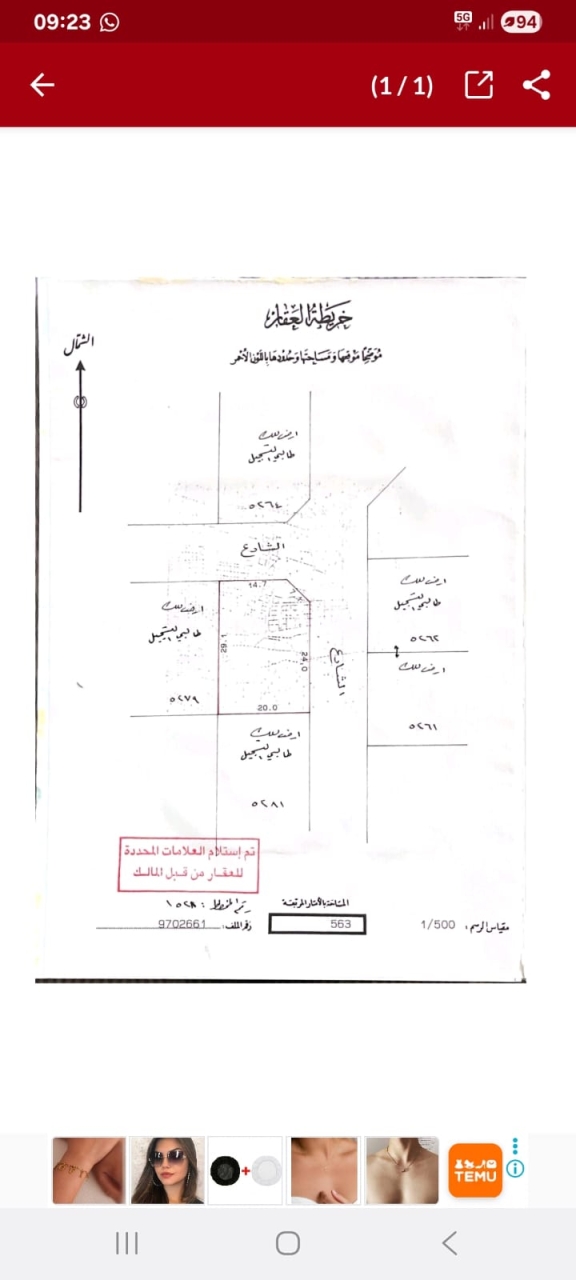 09:23
5G
94
(1 / 1)
خريطة العقار
موضحاً موقعها ومساحتها وحدودها باللون الأحمر
الشمال
ارض لملك
طالبي التسجيل
٥٢٦٤
الشارع
14.7
ارض لملك
طالبي التسجيل
٥٢٧٩
29.1
24.0
20.0
الشارع
ارض لملك
طالبي التسجيل
٥٢٦٢
ارض لملك
٥٢٦١
ارض لملك
طالبي التسجيل
٥٢٨١
تم إستلام العلامات المحددة
للعقار من قبل المالك
رقم المخطط : ١٥٢٨
رقم الملف: 9702661
المساحة بالأمتار المربعة
563
مقياس الرسم: 1/500
TEMU